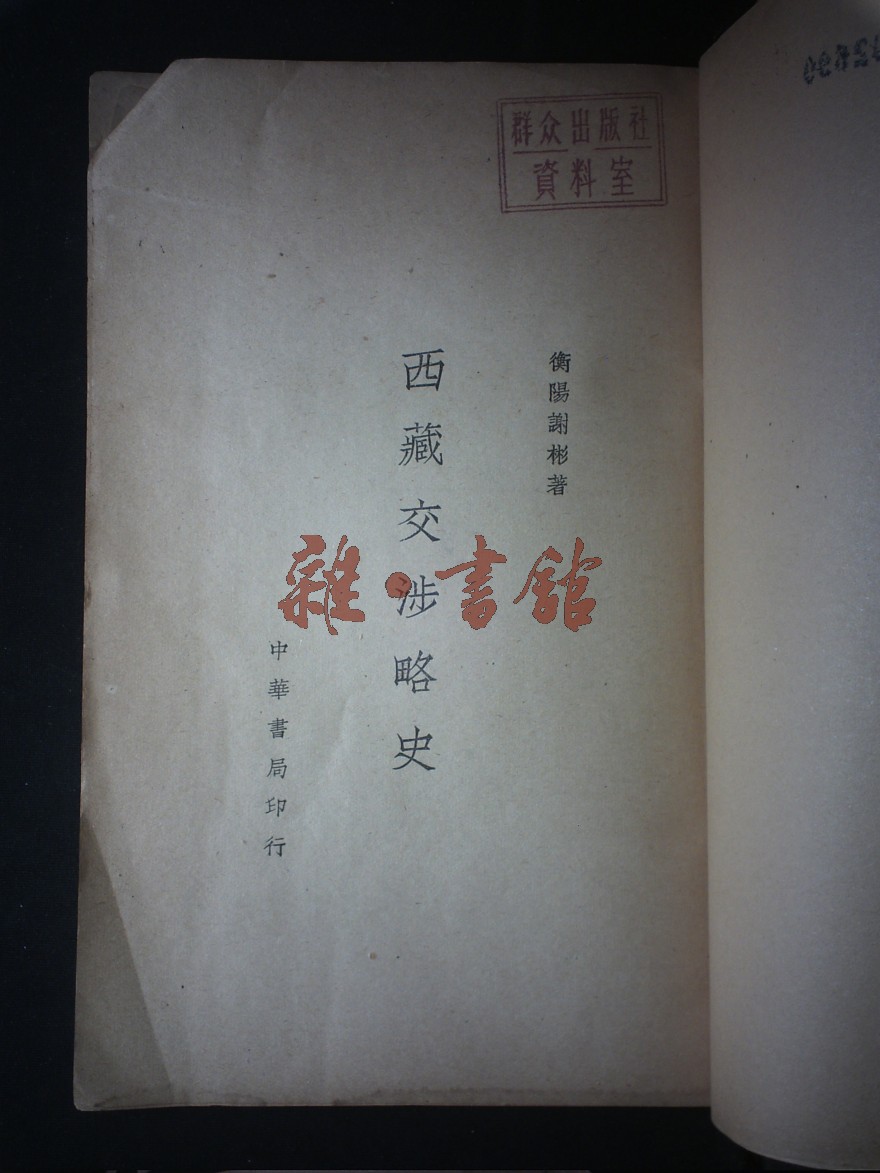 群众出版社
資料室
衡陽謝彬著
西藏交涉略史
中華書局印行
雜·書館